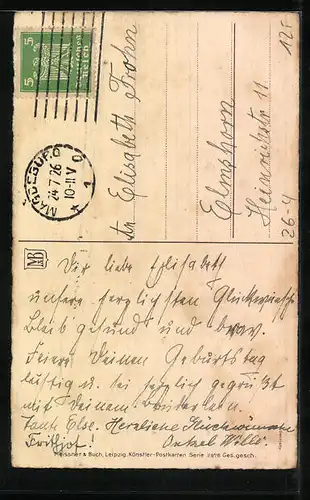 12F
5
5
Deutsches
Reich
MAGDEBURG
24.7.26
10-11V
* 1
An Elisabeth Frohn
Elmshorn
Heinrichstr 11
26-4
MB
Dir liebe Elisabeth
unsere herzlichsten Glückwünsche
Bleib gesund und brav.
Feiere Deinen Geburtstag
lustig u. sei herzlich gegrüßt
mit Deinem Brüderlein.
Tante Else. Herzlichen Glückwunsch
Frithjof! Onkel Willi.
Meissner & Buch, Leipzig. Künstler-Postkarten Serie Ges. gesch.